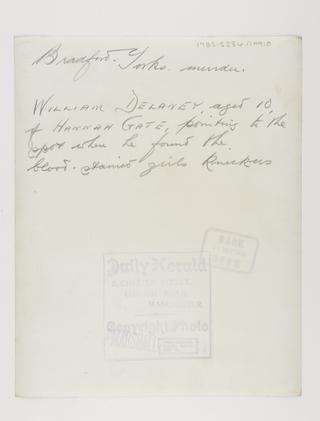 1983-5236/14910
Bradford. Yorks. murder.
WILLIAM DELANEY, aged 10,
of HANNAH GATE, pointing to the
spot where he found the
blood-stained girls knickers
Daily Herald
MANCHESTER.
Copyright Photo